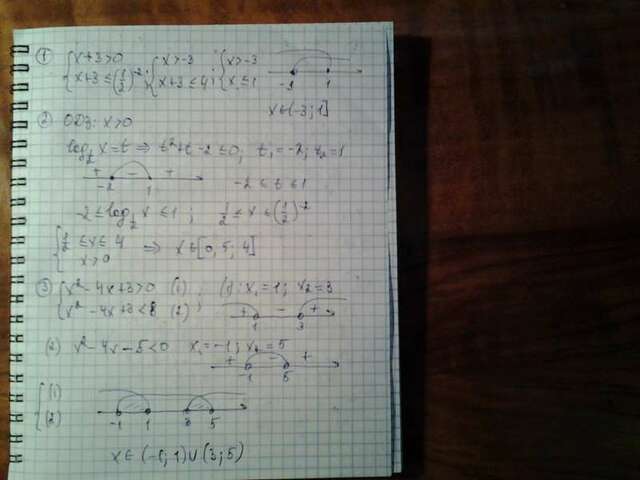 1) { x+3>0 ; { x>-3 ; { x>-3
{ x+3≤(1/2)^-2 ; { x+3≤4 ; { x≤1
-3 1
x∈(-3; 1]
2) ОДЗ: x>0
log_{1/2} x=t ⇒ t²+t-2≤0; t₁=-2; t₂=1
+ - +
-2 1 -2≤t≤1
-2≤log_{1/2} x≤1 ; 1/2≤x≤(1/2)^-2
{ 1/2≤x≤4
{ x>0 ⇒ x∈[0,5; 4]
3) { x²-4x+3>0 (1) ; (1): x₁=1; x₂=3
{ x²-4x+3<8 (2) ; + - +
1 3
(2) x²-4x-5<0 x₁=-1; x₂=5
+ - +
-1 5
{ (1)
{ (2)
-1 1 3 5
x∈(-1; 1)∪(3; 5)